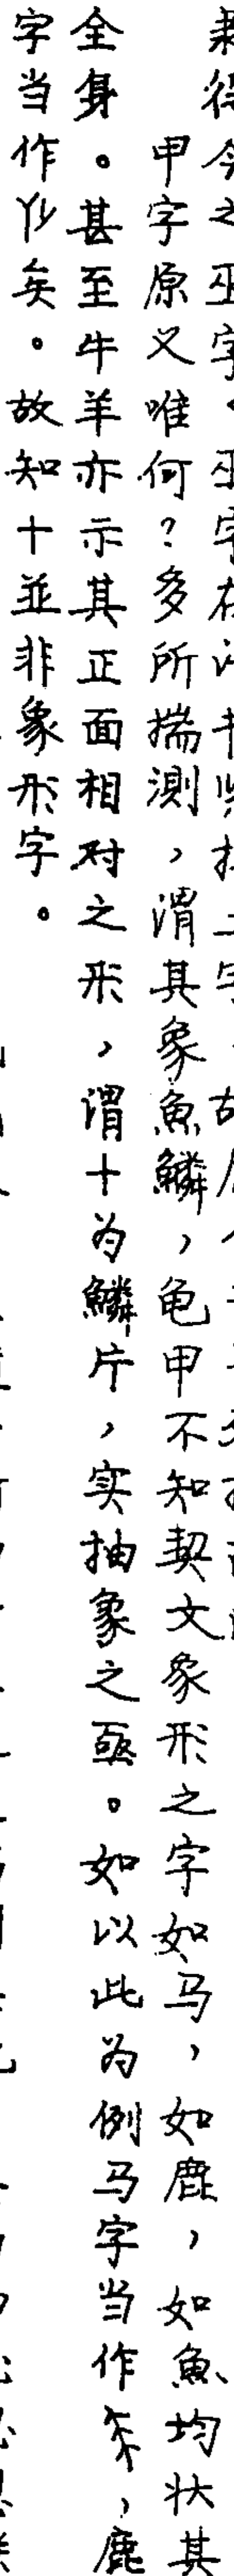 甲字原义唯何？多所揣测，谓其象魚鱗，龟甲不知契文象形之字如马，如鹿，如魚均状其
全身。甚至牛羊亦示其正面相对之形，谓十为鱗片，实抽象之亟。如以此为例马字当作，鹿
字当作矣。故知十並非象形字。